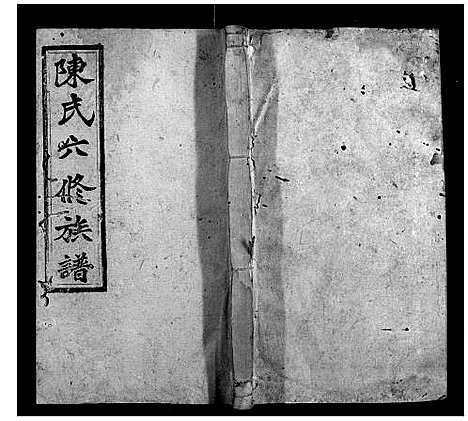 陳氏六修族譜